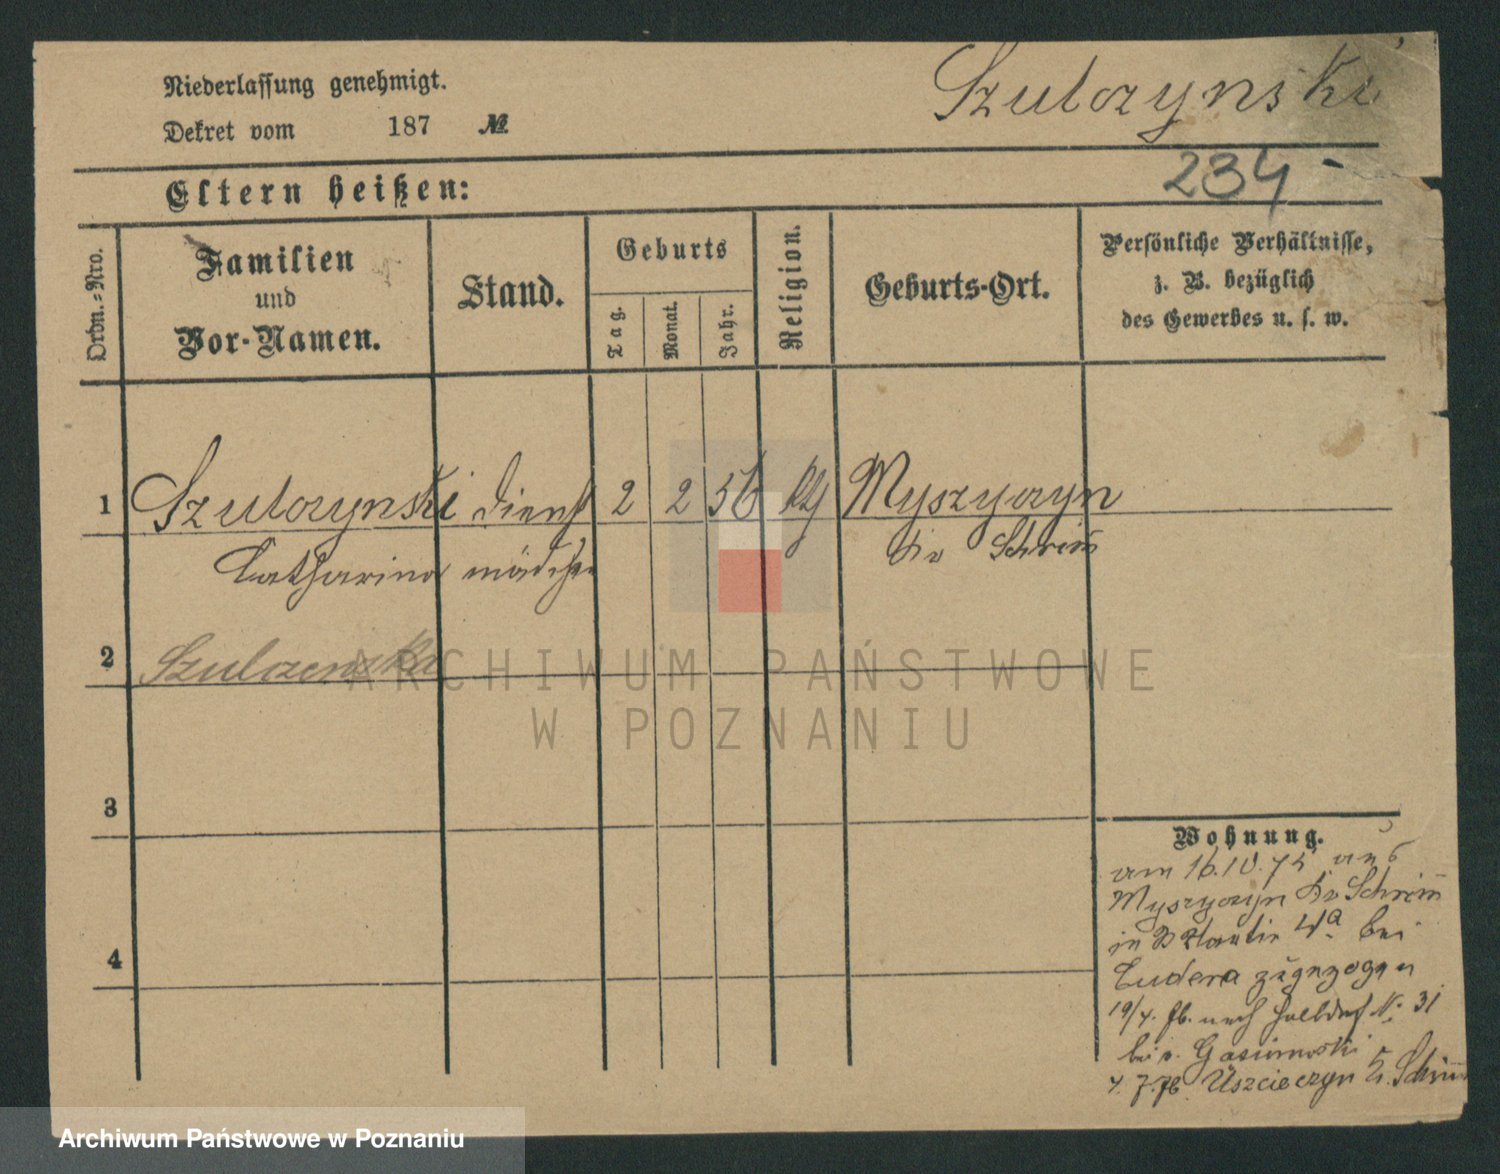 Niederlassung genehmigt.
Dekret vom 187 №
Szulczynski
234
Eltern heißen:
Ordn.=Nro.
Familien
und
Vor-Namen.
Stand.
Geburts
Tag.
Monat.
Jahr.
Religion.
Geburts-Ort.
Persönliche Verhältnisse,
z. B. bezüglich
des Gewerbes u. s. w.
1 Szulczynski Dienst 2 2 56 Myszyczyn
Catharina mädchen Kr Schrim
2 Szulczenska
3
4
Wohnung.
am 16.10.75 aus
Myszyczyn Kr Schrim
in 4a bei
Ludera zugezogen
19/4. nach Halbdorf No 31
bei v. Gasiorowski
7.76 Uszcieczyn K. Schrim
ARCHIWUM PAŃSTWOWE
W POZNANIU
Archiwum Państwowe w Poznaniu